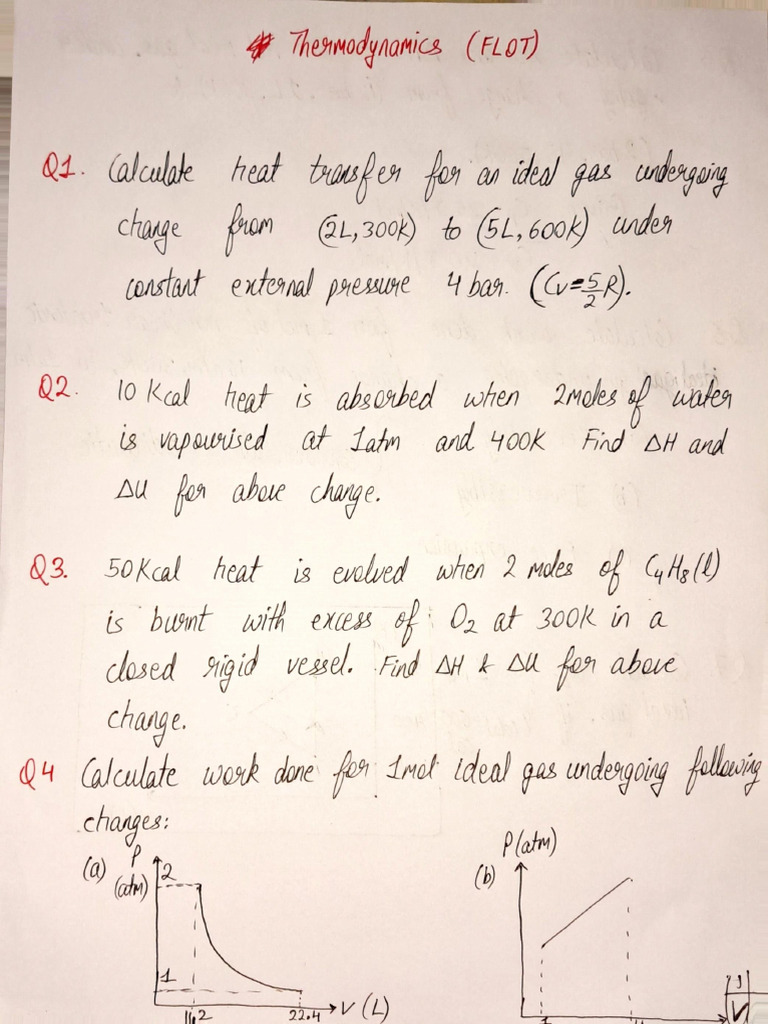 Thermodynamics (FLOT)
Q1. Calculate heat transfer for an ideal gas undergoing
change from (2L,300K) to (5L,600K) under
constant external pressure 4 bar. (Cv=5/2R).
Q2. 10 Kcal heat is absorbed when 2moles of water
is vapourised at 1atm and 400K Find ΔH and
ΔU for above change.
Q3. 50Kcal heat is evolved when 2 moles of C₄H₈(l)
is burnt with excess of O₂ at 300K in a
closed rigid vessel. Find ΔH & ΔU for above
change.
Q4 Calculate work done for 1mol ideal gas undergoing following
changes:
(a) P (atm) 2
1
11.2 22.4 V (L)
(b) P(atm)
V